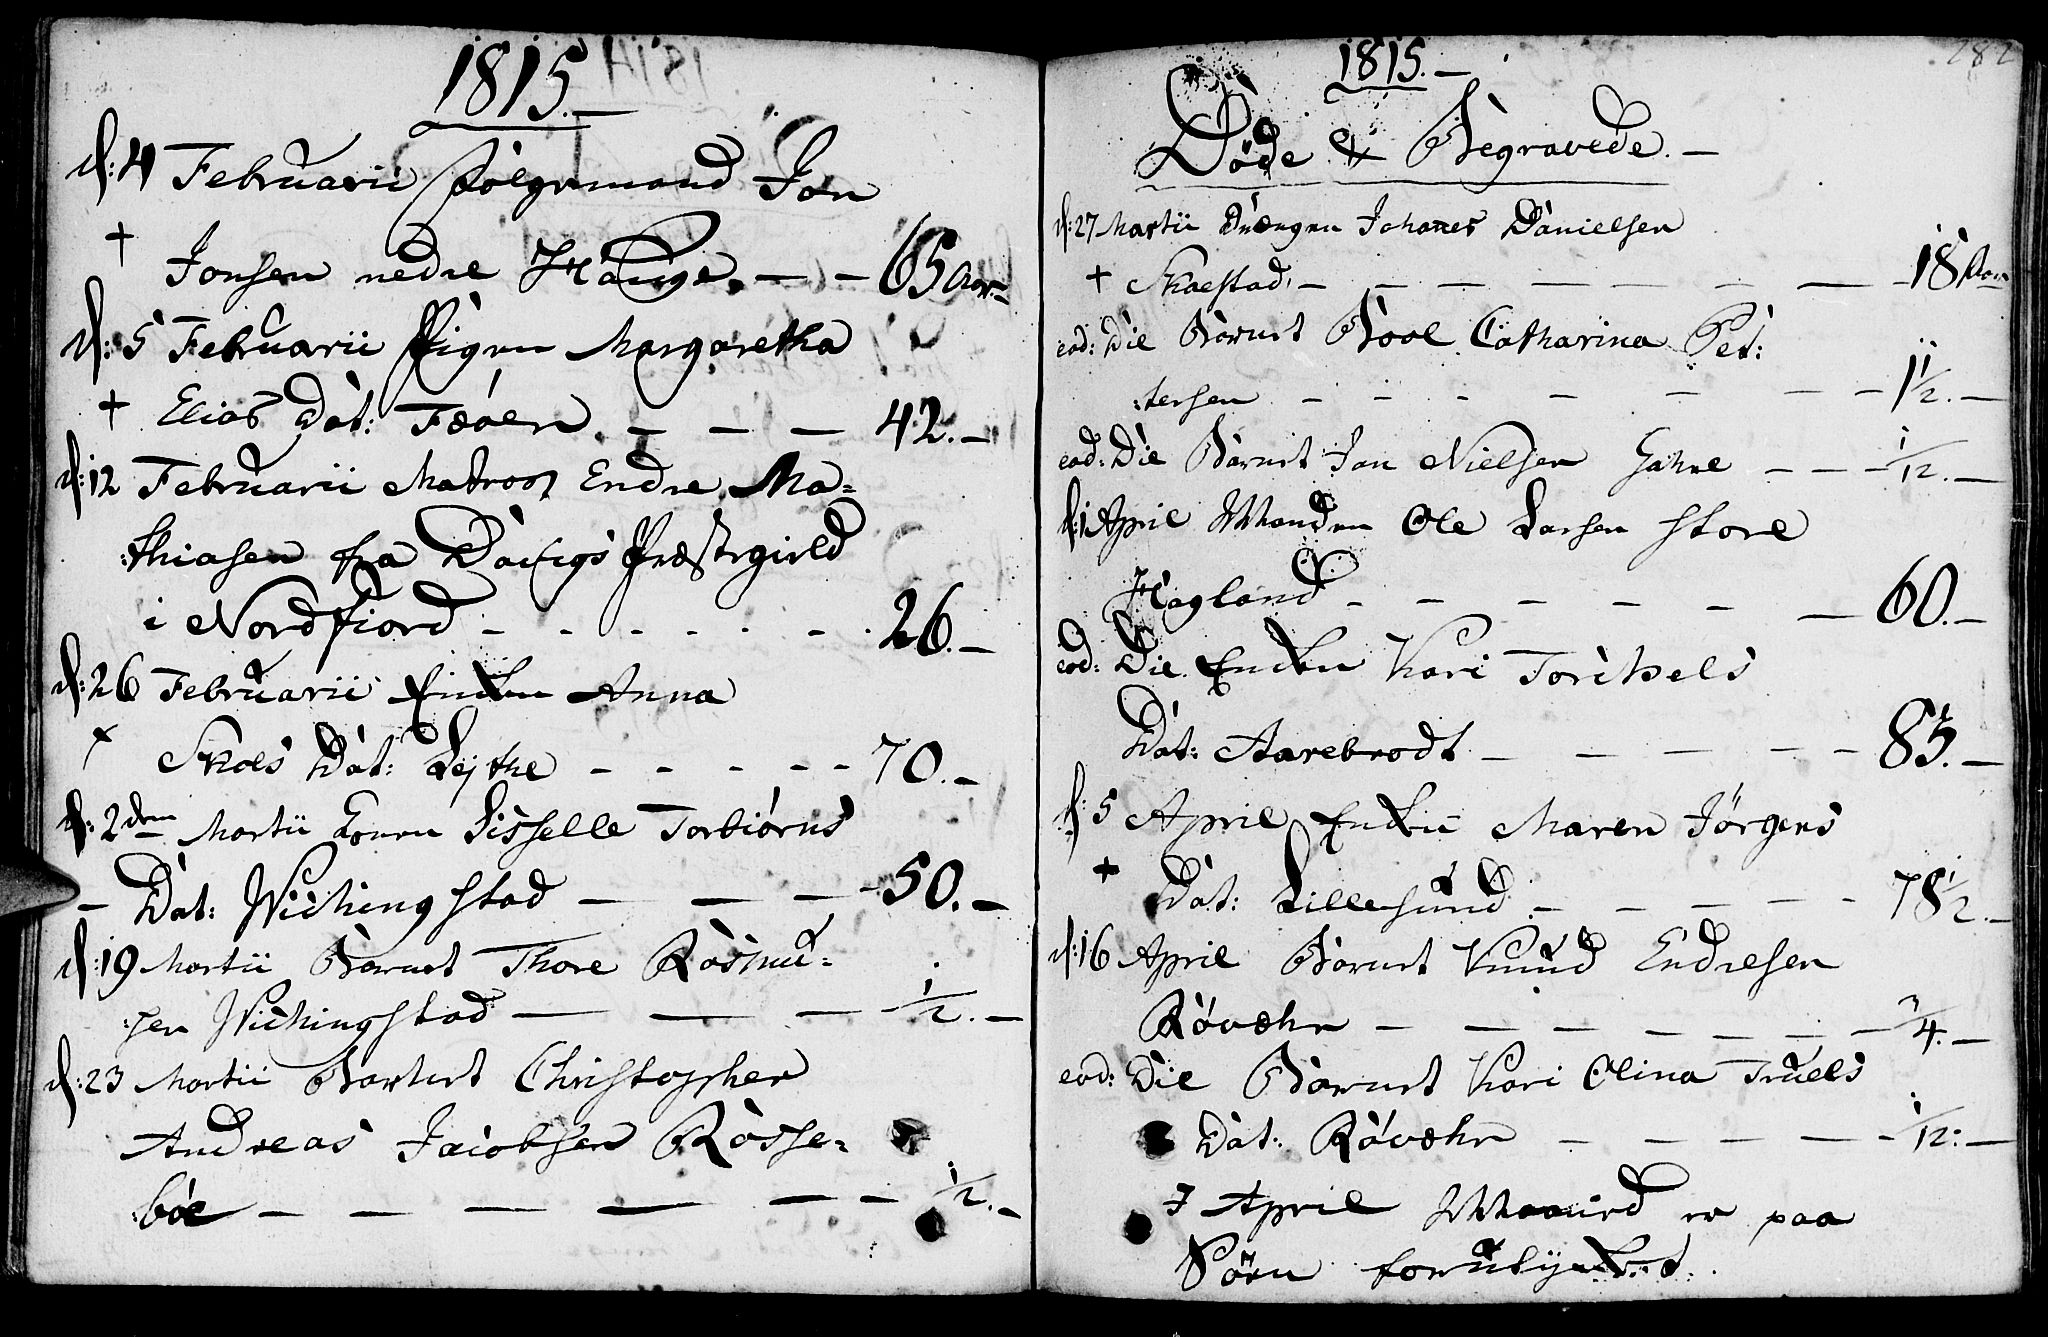 1815.
d: 4 Februarii Følgemand Jon
† Jonsen nedre Hauge. 65 Aar.
d: 5 Februarii Pigen Margaretha
† Elias Dat: Fæøen 42.
d: 12 Februarii Matros Endre Ma=
:thiasen fra Præstegield
i Nordfiord 26.
d: 26 Februarii Enken Anna
Dat: 70.
d: 2den Martii Konen Sisselle Torbiørns
Dat: Wichingstad 50.
d: 19 Martii Barnet Thore Rasmu=
:sen Wichingstad 1/2.
d: 23 Martii Barnet Christopher
Andreas Jacobsen Rosse=
:bøe 1/2.
282
1815.
Døde & Begravede.
d: 27 Martii Drengen Johanes Danielsen
† 18 Aar
eod: Die Barnet Boel Catharina Pet:
:tersen 1 1/2.
eod: Die Barnet Jon Nielsen 1/12.
d: 1 April Manden Ole Larsen store
Hagland 60.
eod: Die Enken Kari Torckels
Dat: Aarebrodt 83.
d: 5 April Enken Maren Jørgens
† Dat: Lillesund 78 1/2.
d: 16 April Barnet Knud Endresen
Røvæhr 3/4.
eod: Die Barnet Kari Olina Truels
Dat: Røvæhr 1/12.
7 April er paa
Søen forulykket.